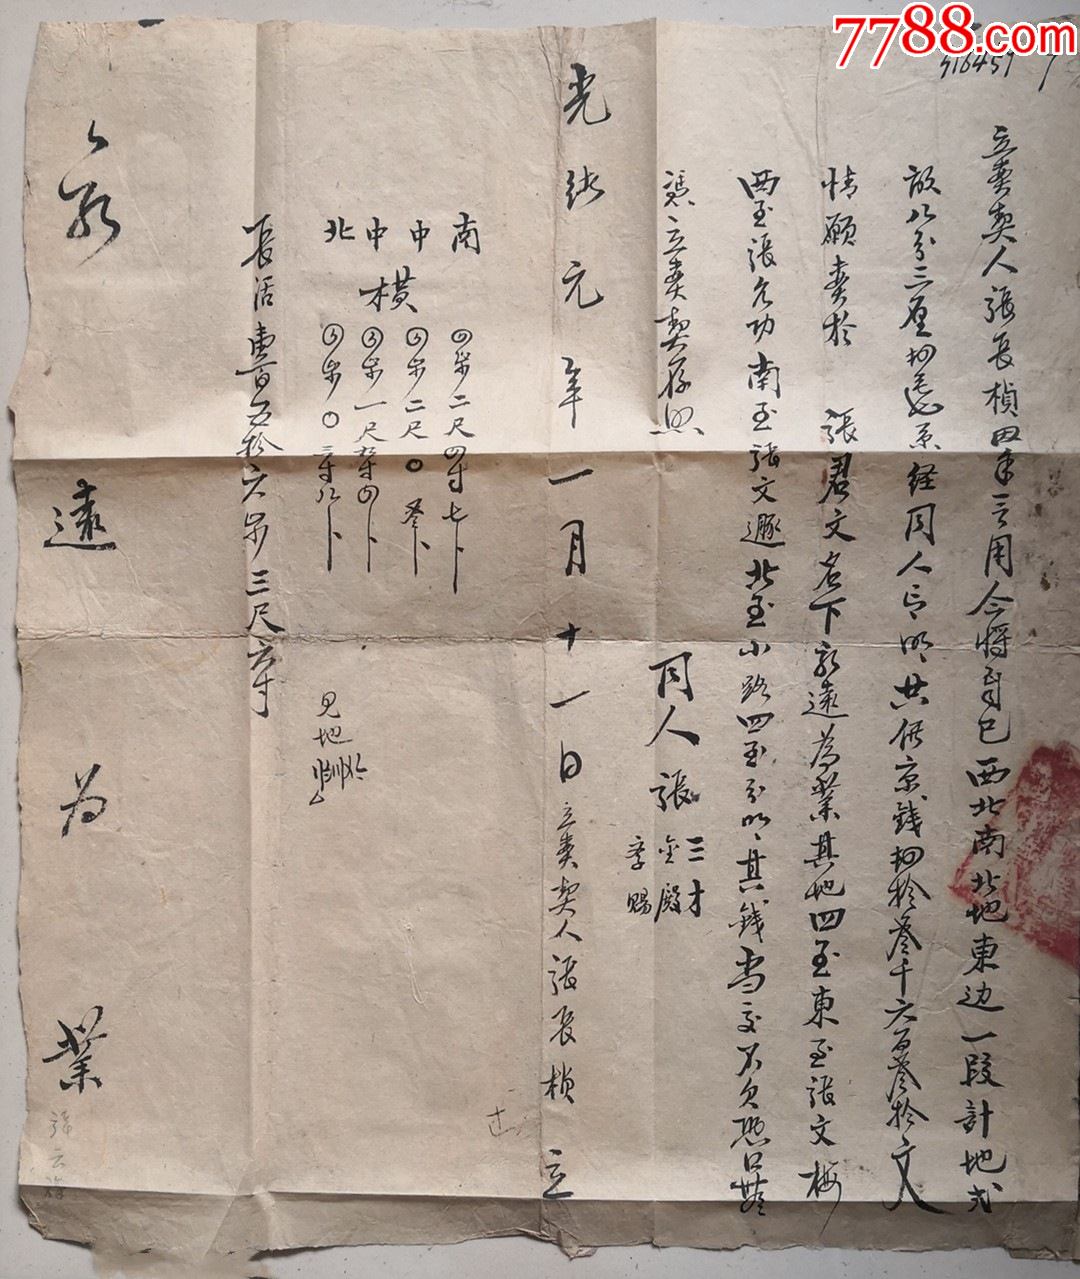 7788.com
立賣契人張長楨因手乏用今將自己西北南北地東边一段計地弍
畝八分三厘 系經同人言明共價京錢 拾叁千六百叁拾文
情願賣於 張君文名下永遠為業其地四至東至張文梅
西至張允功南至張文遯北至小路四至分明其錢當交不欠恐口無
憑立賣契存照
同人張 三才 金殿 李賜
光緒元年一月十一日立賣契人張長楨 立
南 步二尺四寸七
中 步二尺〇
中横 步一尺
北 步〇二寸八
長活壹百五拾六步三尺六寸
見地
永遠為業